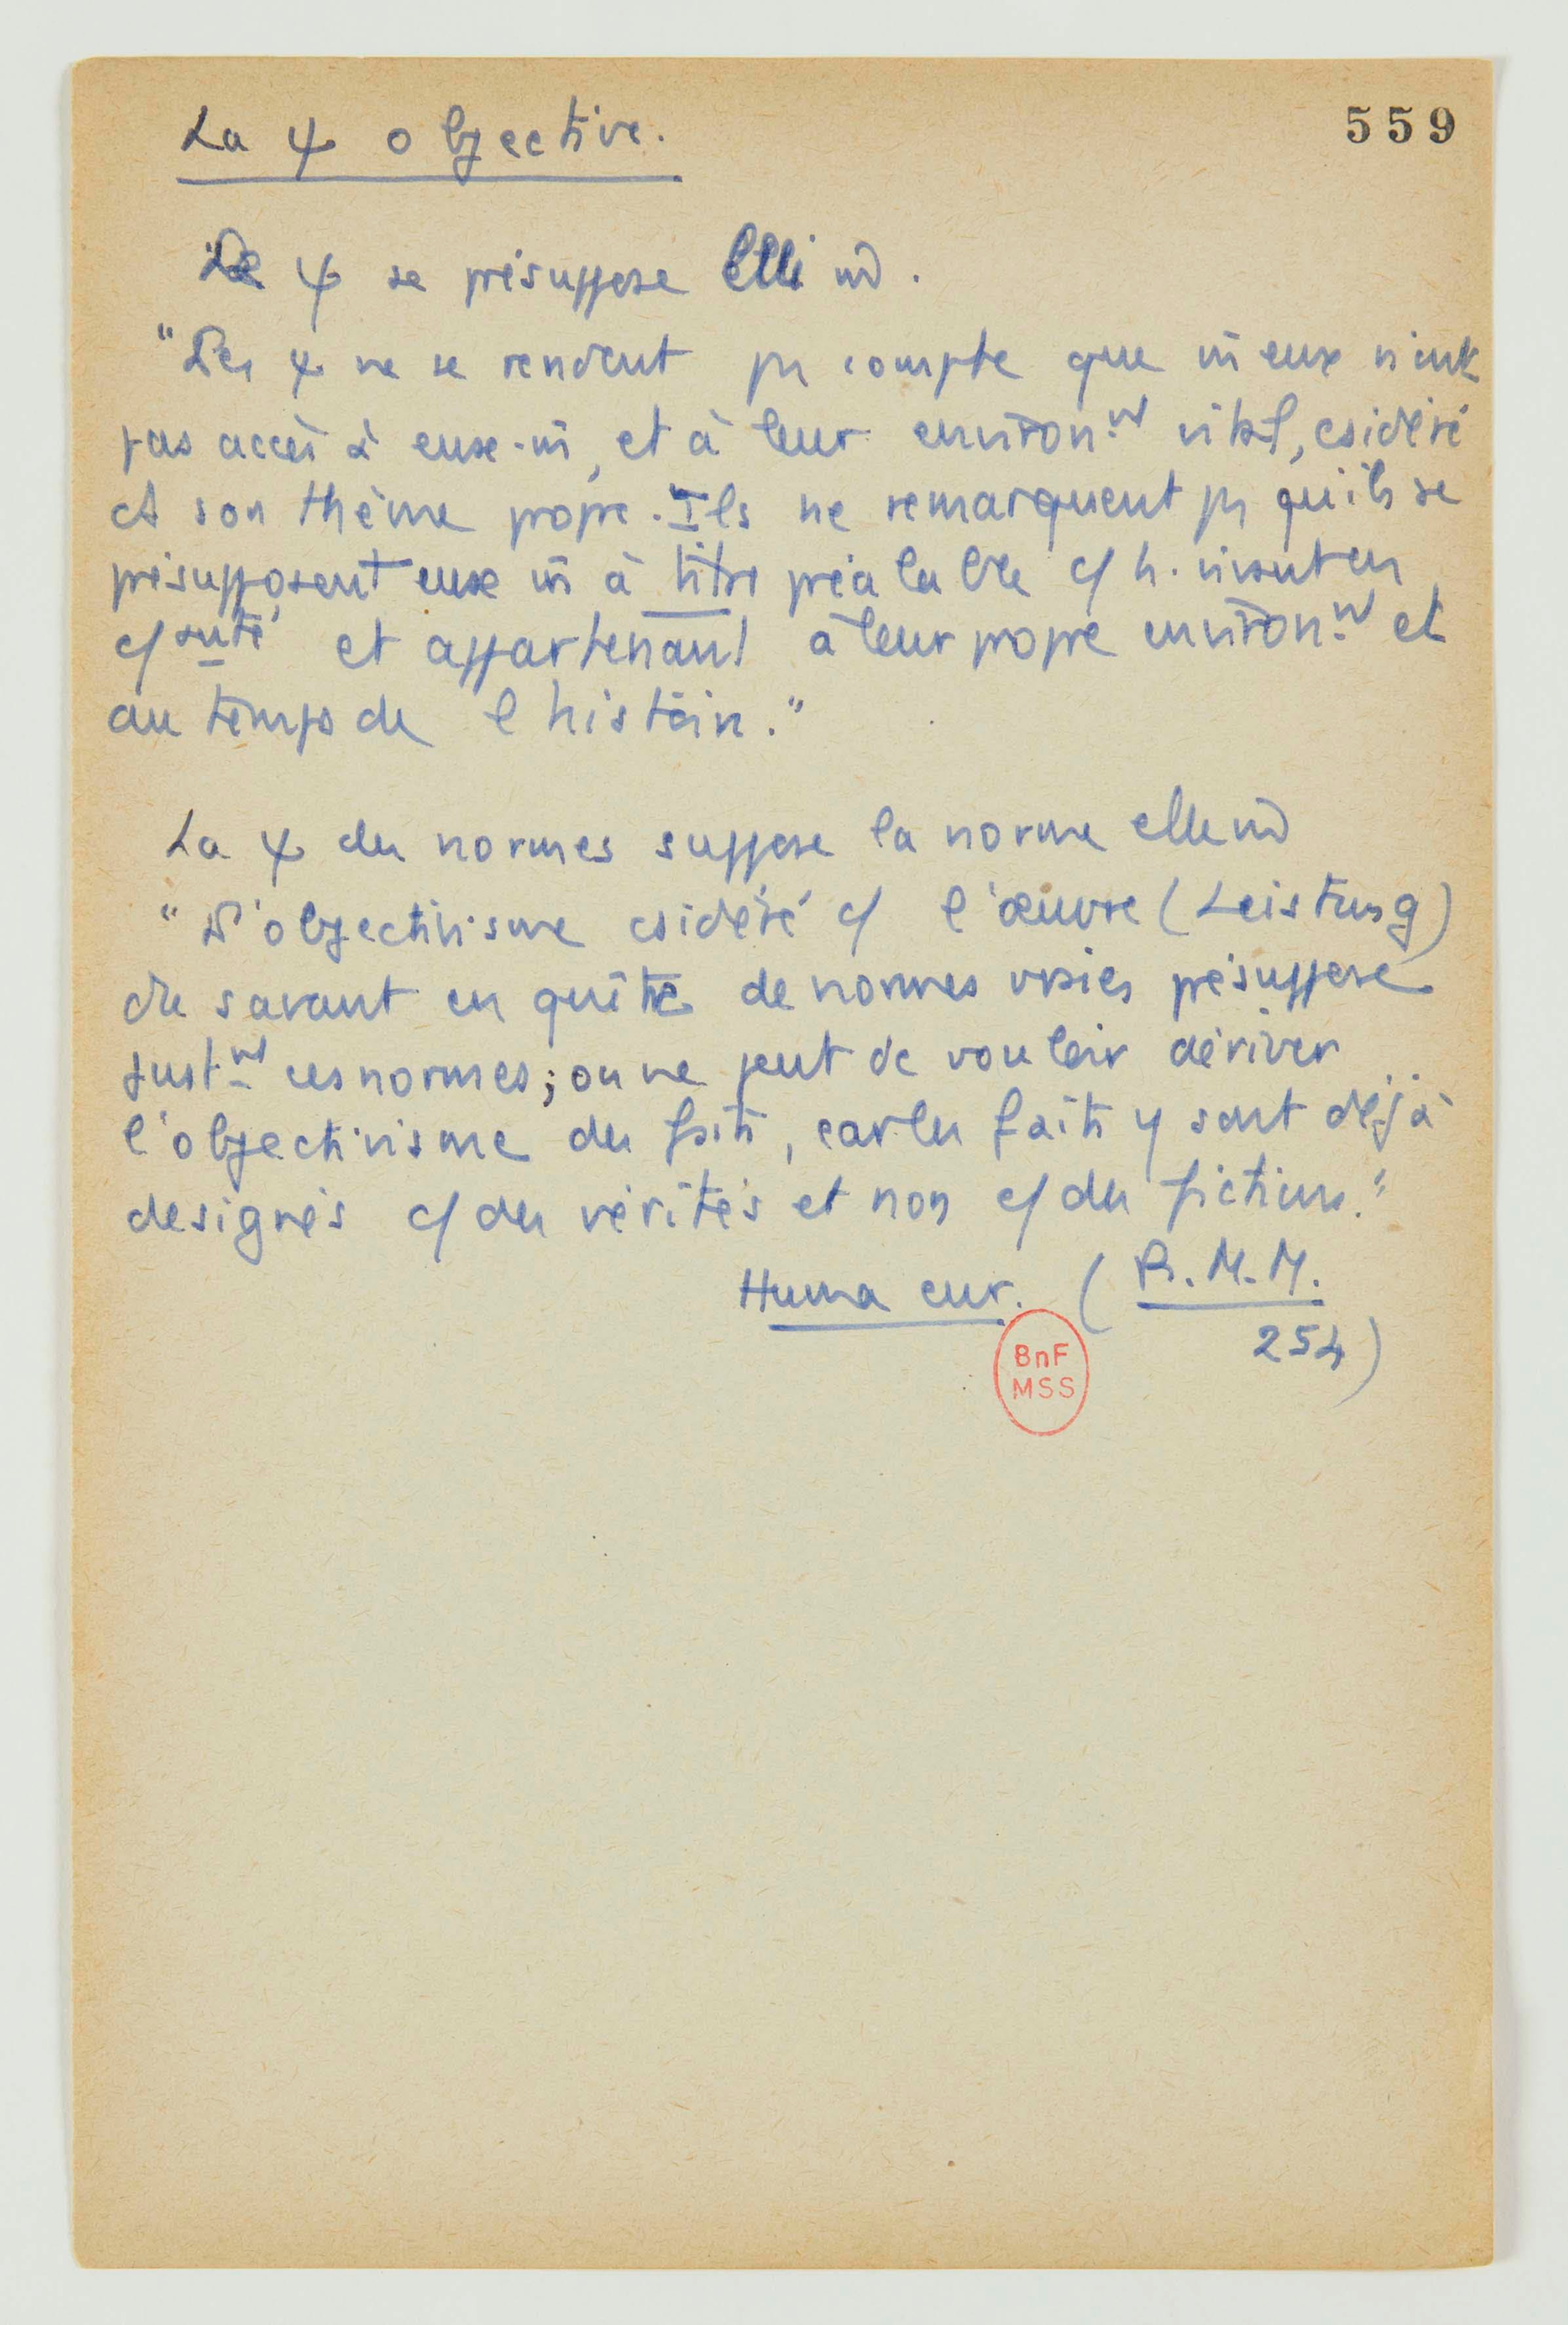 559
La ψ objective.
La ψ se présuppose elle m̂.
"Les ψ ne se rendent pas compte que m̄ eux n'ont
pas accès à eux-m̄, et à leur environ.nt vital, csidéré
ct son thème propre. Ils ne remarquent pas qu'ils se
présupposent eux m̄ à titre préalable c/ h. vivant en
c/auté et appartenant à leur propre environ.nt et
au temps de l'histoire."
La ψ des normes suppose la norme elle m̂
"L'objectivisme csidéré c/ l'œuvre (Leistung)
du savant en quête de normes vraies présuppose
just.nt ces normes; on ne peut dc vouloir dériver
l'objectivisme des faits, car les faits y sont déjà
désignés c/ des vérités et non c/ des fictions."
Huma eur. (R.M.M.
254)
BnF
MSS